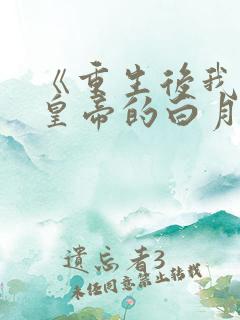 《重生後我
皇帝的白月
遺忘者3
未经同意禁止转载